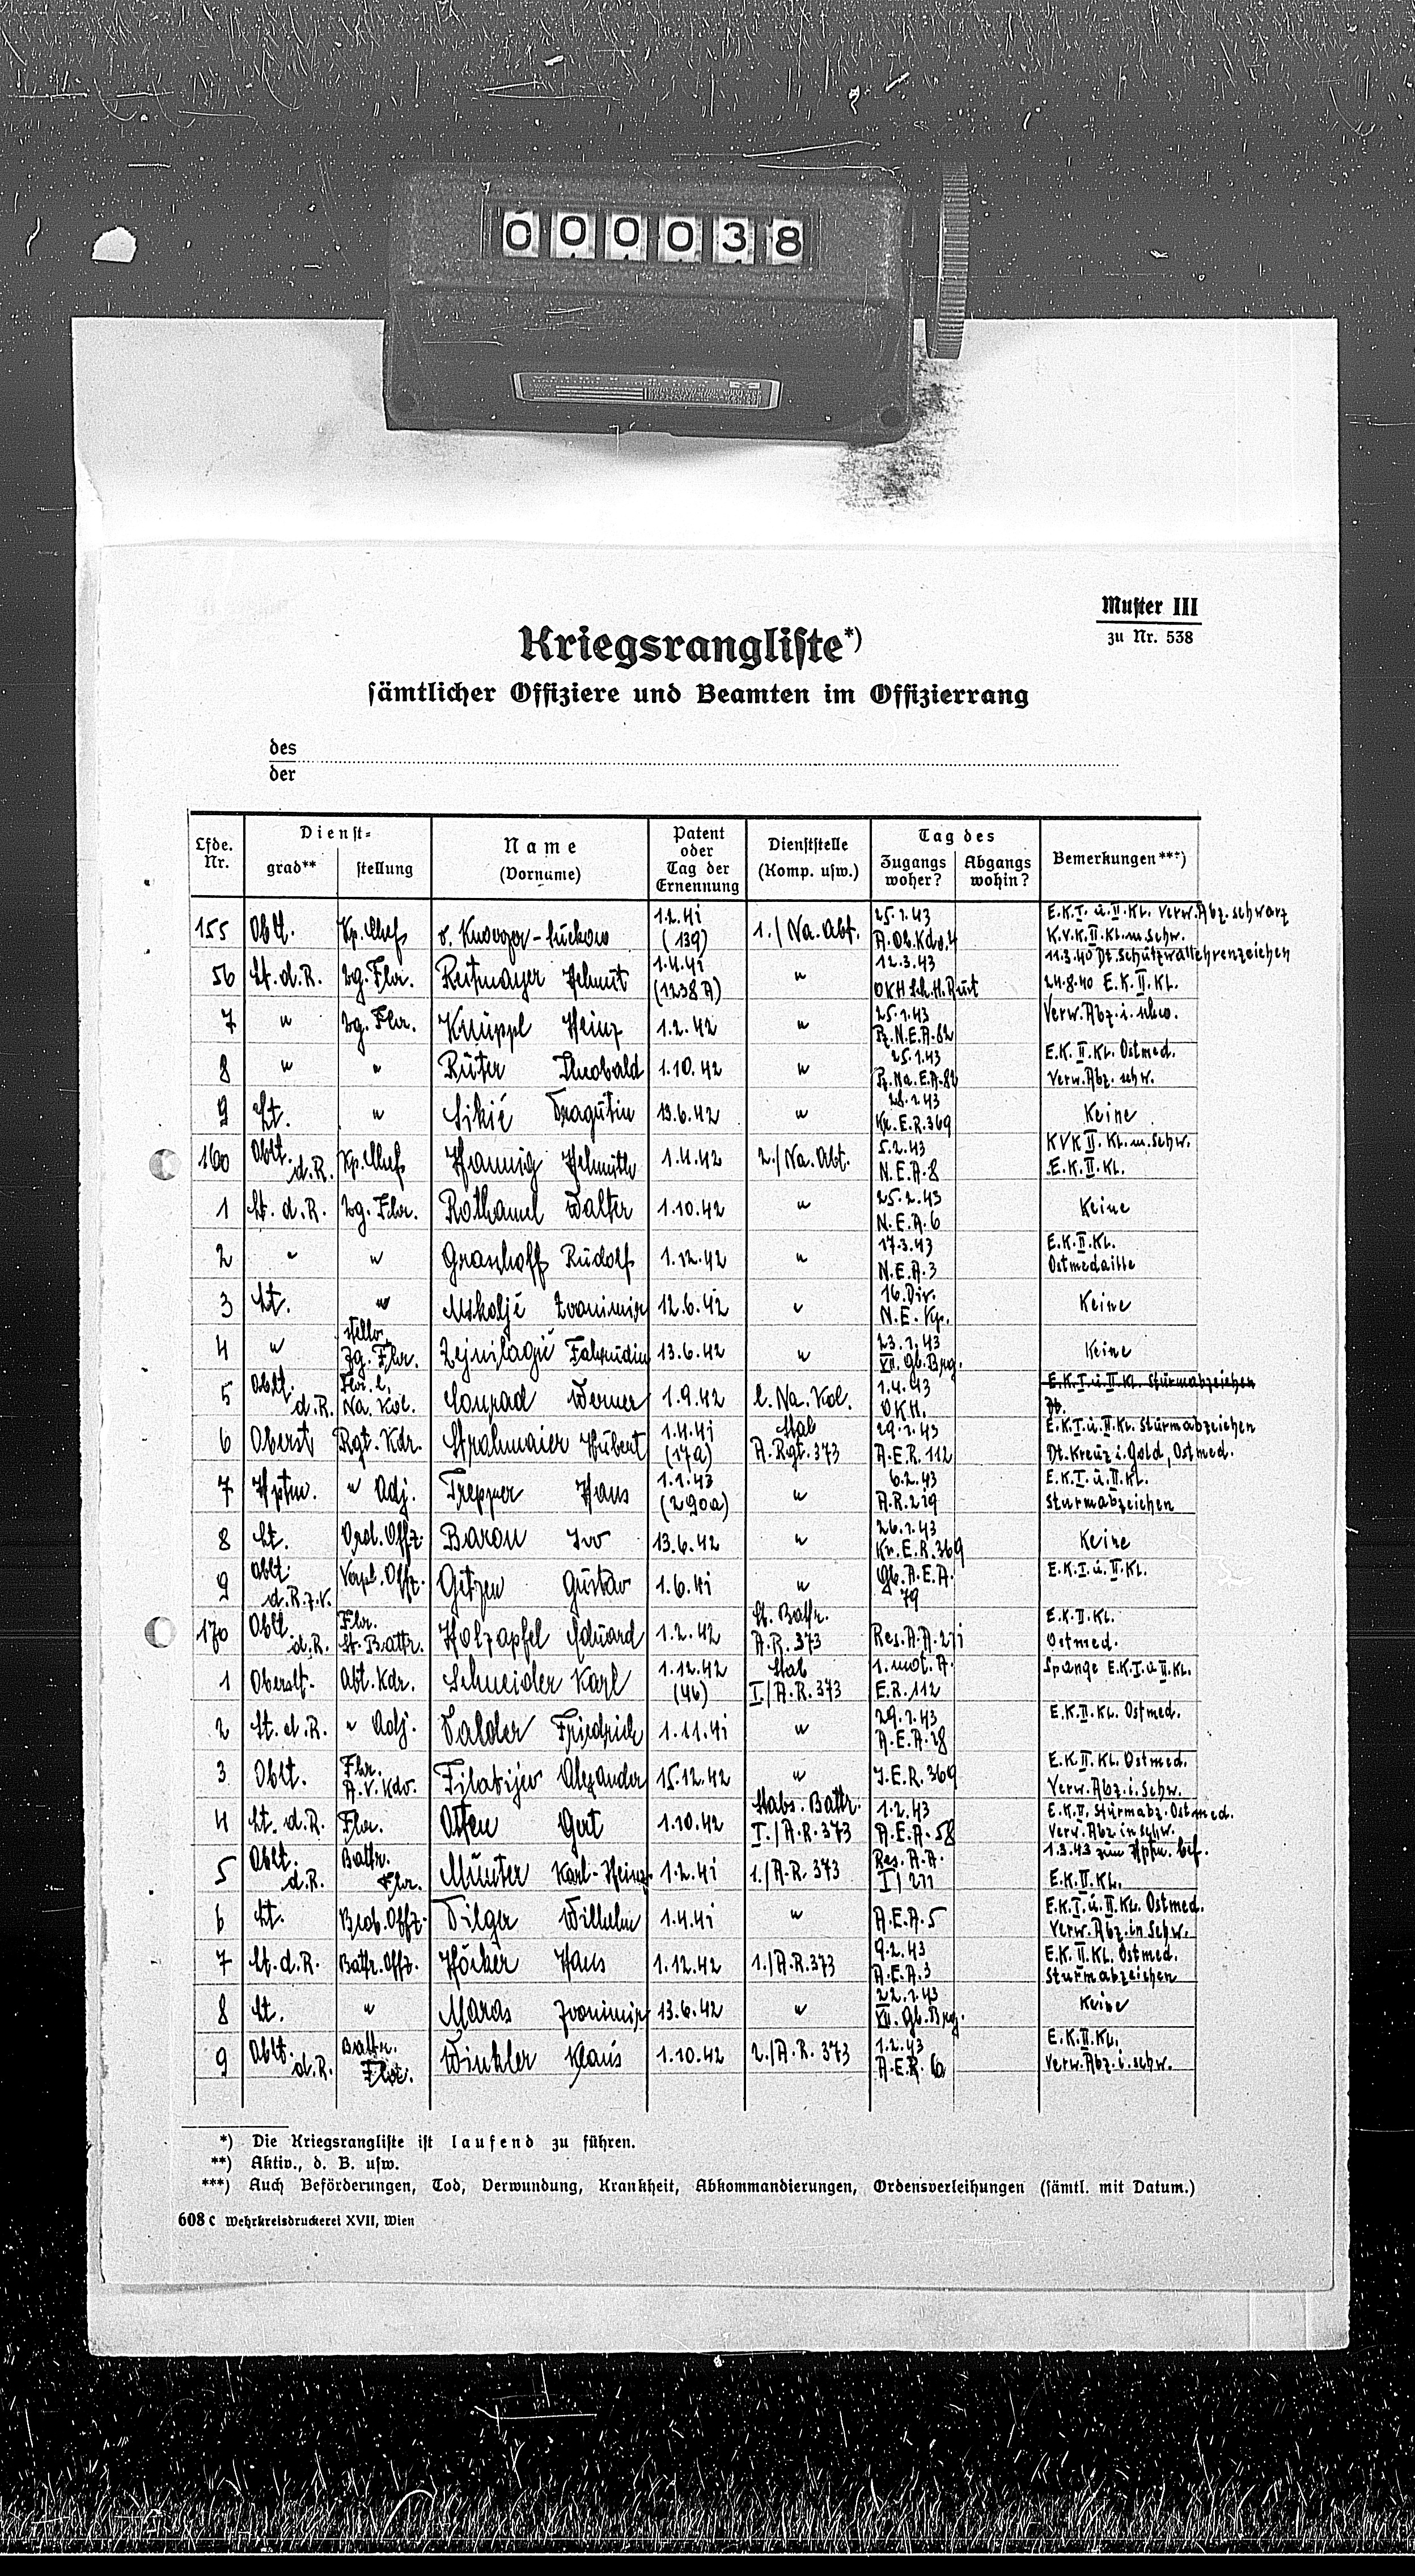 000038
Muster III
zu Nr. 538
Kriegsrangliste*)
sämtlicher Offiziere und Beamten im Offizierrang
des
der
Lfde. Nr. Dienst- grad** stellung Name (Vorname) Patent oder Tag der Ernennung Dienststelle (Komp. usw.) Tag des Zugangs woher? Abgangs wohin? Bemerkungen***)
155 Oblt. Kp. Chef v. -Lückow 1.2.41 (139) 1./Na. Abt. 25.1.43 A.Ob.Kdo.4 E.K.I. u. II. Kl. Verw. Abz. schwarz K.V.K. II. Kl. m. Schw.
56 Lt. d. R. Zg. Fhr. Reitmayer Helmut 1.4.41 (1238 A) " 12.3.43 OKH 11.3.40 Dt. Schutzwallehrenzeichen 24.8.40 E.K. II. Kl.
7 " Zg. Fhr. Knüppl Heinz 1.2.42 " 25.1.43 Pz.N.E.A.82 Verw. Abz. i. schw.
8 " " Rüter Theobald 1.10.42 " 25.1.43 Pz.Na.E.A.82 E.K. II. Kl. Ostmed. Verw. Abz. schw.
9 Lt. " Sikić Dragutin 13.6.42 " 28.1.43 Kr.E.R.369 Keine
160 Oblt. d.R. Kp. Chef Hannig Helmuth 1.4.42 2./Na. Abt. 5.2.43 N.E.A.8 KVK II. Kl. m. Schw. E.K. II. Kl.
1 Lt. d. R. Zg. Fhr. Rothamel Walter 1.10.42 " 25.2.43 N.E.A.6 Keine
2 " " Grashoff Rudolf 1.12.42 " 17.3.43 N.E.A.3 E.K. II. Kl. Ostmedaille
3 Lt. " Zvonimir 12.6.42 " 16. Div. N.E. Kp. Keine
4 " stellv. Zg. Fhr. Zejnilagić Fahrudin 13.6.42 " 23.1.43 VII. Gb. Brg. Keine
5 Oblt. d.R. Fhr. l. Na. Kol. Conrad Werner 1.9.42 l. Na. Kol. 1.4.43 OKH. E.K.I. u. II. Kl. Sturmabzeichen
6 Oberst Rgt. Kdr. Strohmaier Hubert 1.4.41 (17a) Stab A. Rgt. 373 29.1.43 A.E.R. 112 E.K.I. u. II. Kl. Sturmabzeichen Dt. Kreuz i. Gold, Ostmed.
7 Hptm. " Adj. Trepper Hans 1.1.43 (290a) " 6.2.43 A.R. 219 E.K.I. u. II. Kl. Sturmabzeichen
8 Lt. Ord. Offz. Baron Ivo 13.6.42 " 26.1.43 Kr.E.R.369 Keine
9 Oblt. d.R.z.V. Verpl. Offz. Gitzen Gustav 1.6.41 " Gb.A.E.A. 79 E.K.I. u. II. Kl.
170 Oblt. d.R. Fhr. St. Battr. Holzapfel Eduard 1.2.42 St. Battr. A.R. 373 Res.A.A. 211 E.K. II. Kl. Ostmed.
1 Oberstlt. Abt. Kdr. Schneider Karl 1.12.42 (46) Stab I./A.R. 373 1. mot. A. E.R. 112 Spange E.K.I. u. II. Kl.
2 Lt. d. R. " Adj. Dalder Friedrich 1.11.41 " 29.1.43 A.E.A. 28 E.K. II. Kl. Ostmed.
3 Oblt. Fhr. A.V. Kdo. Filatijew Alexander 15.12.42 " J.E.R. 369 E.K. II. Kl. Ostmed. Verw. Abz. i. Schw.
4 Lt. d. R. Fhr. Otten Gert 1.10.42 Stabs. Battr. I./A.R. 373 1.2.43 A.E.A. 58 E.K. II, Sturmabz. Ostmed. Verw. Abz. in Schw.
5 Oblt. d.R. Battr. Fhr. Münter Karl-Heinz 1.2.41 1./A.R. 373 Res. A.A. I/211 1.3.43 zum Hptm. bef. E.K. II. Kl.
6 Lt. Beob. Offz. Dilger Wilhelm 1.4.41 " A.E.A. 5 E.K.I. u. II. Kl. Ostmed. Verw. Abz. in Schw.
7 Lt. d. R. Battr. Offz. Höcker Hans 1.12.42 1./A.R. 373 9.2.43 A.E.A. 3 E.K. II. Kl. Ostmed. Sturmabzeichen
8 Lt. " Maras Zvonimir 13.6.42 " 22.1.43 VII. Gb. Brg. Keine
9 Oblt. d.R. Battr. Fhr. Winkler Klaus 1.10.42 2./A.R. 373 1.2.43 A.E.R. E.K. II. Kl. Verw. Abz. i. schw.
*) Die Kriegsrangliste ist laufend zu führen.
**) Aktiv., d. B. usw.
***) Auch Beförderungen, Tod, Verwundung, Krankheit, Abkommandierungen, Ordensverleihungen (sämtl. mit Datum.)
608 c Wehrkreisdruckerei XVII, Wien